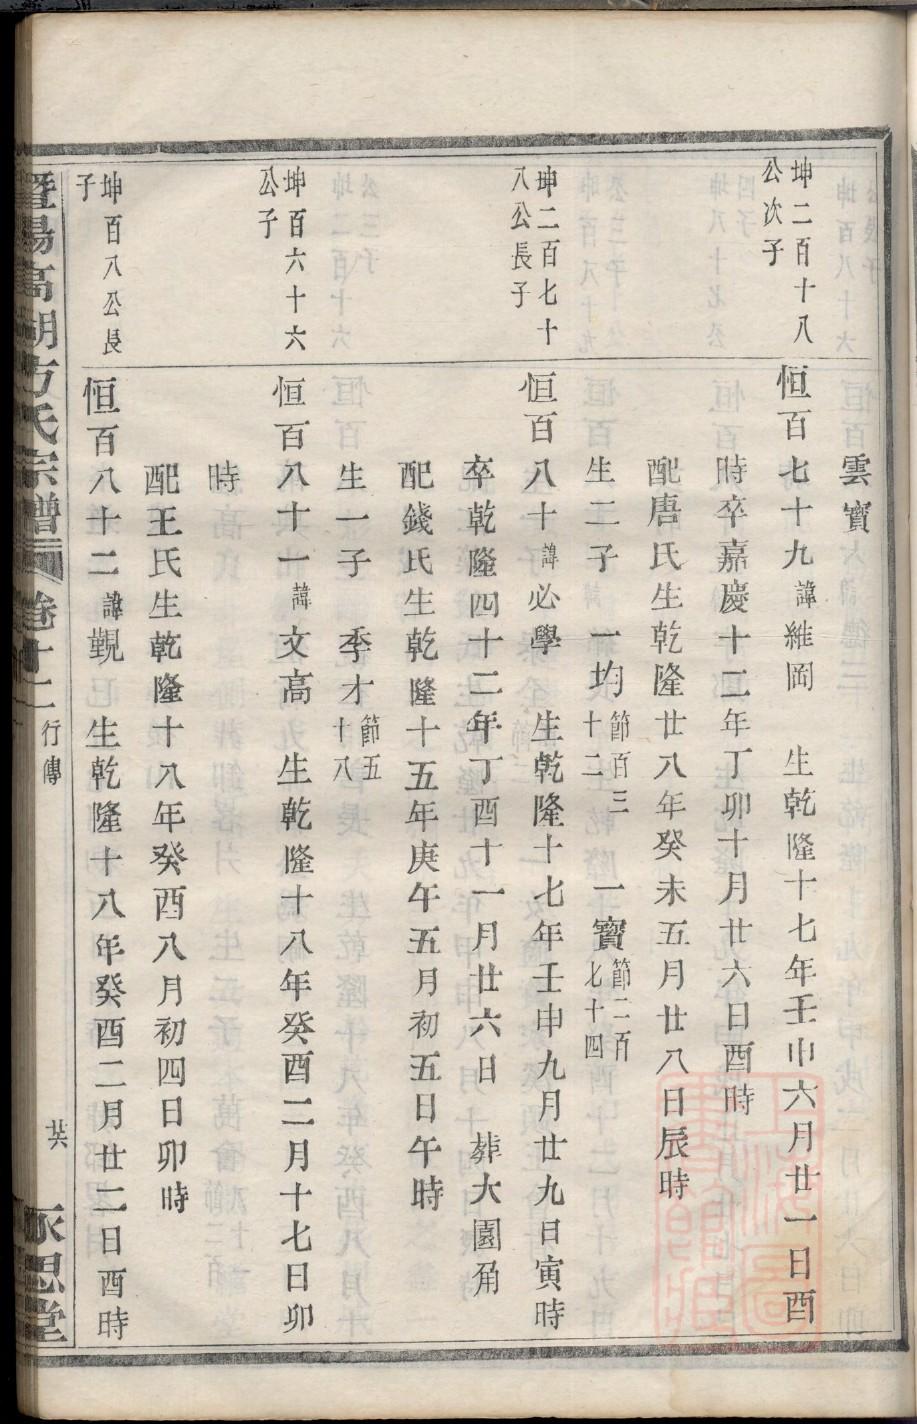 雲寳
坤二百十八
公次子
恒百七十九諱維岡　生乾隆十七年壬申六月廿一日酉
時卒嘉慶十二年丁卯十月廿六日酉時
配唐氏生乾隆廿八年癸未五月廿八日辰時
生二子　一均節百三十二　一寳節二百七十四
坤二百七十
八公長子
恒百八十諱必學　生乾隆十七年壬申九月廿九日寅時
卒乾隆四十二年丁酉十一月廿六日　葬大園角
配錢氏生乾隆十五年庚午五月初五日午時
生一子　季才節五十八
坤百六十六
公子
恒百八十一諱文高　生乾隆十八年癸酉二月十七日卯
時
配王氏生乾隆十八年癸酉八月初四日卯時
坤百八公長
子
恒百八十二諱觀　生乾隆十八年癸酉二月廿二日酉時
暨陽高湖方氏宗譜　卷十二　行傳　廿六　永思堂